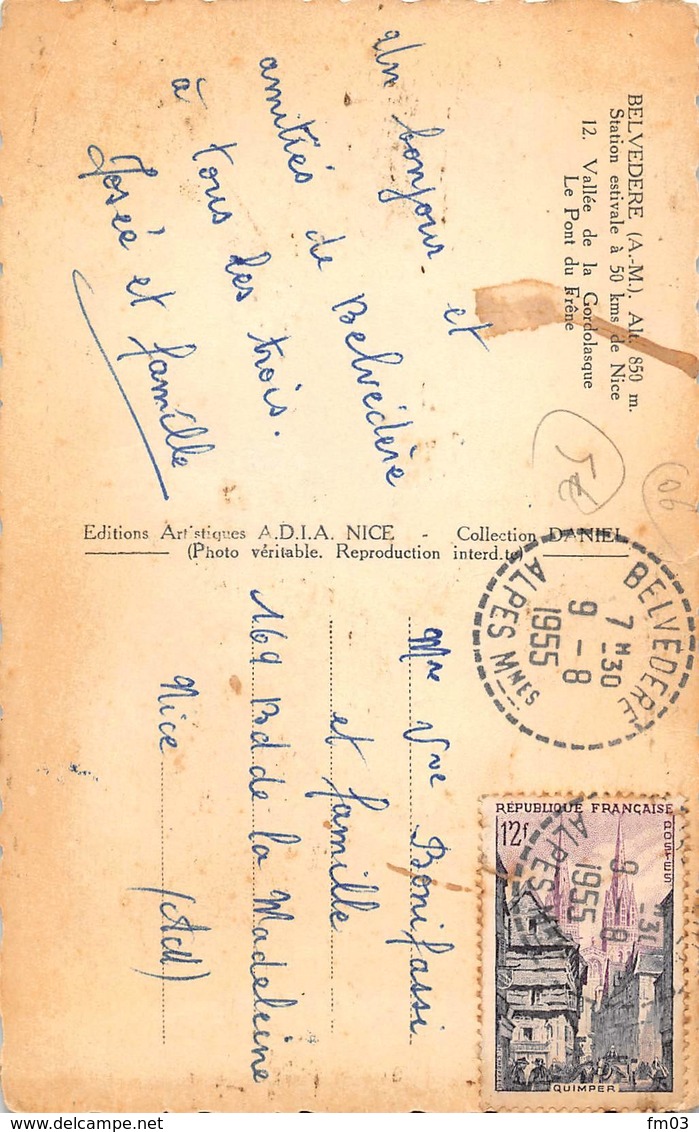 BELVEDERE (A.-M.). Alt. 850 m.
Station estivale à 50 kms de Nice
12. Vallée de la Gordolasque
Le Pont du Frêne
Un bonjour et
amitiés de Belvédère
à tous les trois.
Josée et famille
Editions Artistiques A.D.I.A. NICE - Collection DANIEL
(Photo véritable. Reproduction interd.te)
06
BELVÉDÈRE
7 H 30
9 - 8
1955
ALPES MMES
Mme Vve Bonifassi
et famille
169 Bd de la Madeleine
Nice (AM)
RÉPUBLIQUE FRANÇAISE
POSTES
12f
QUIMPER
9 - 8
1955
ALPES
delcampe.net
fm03